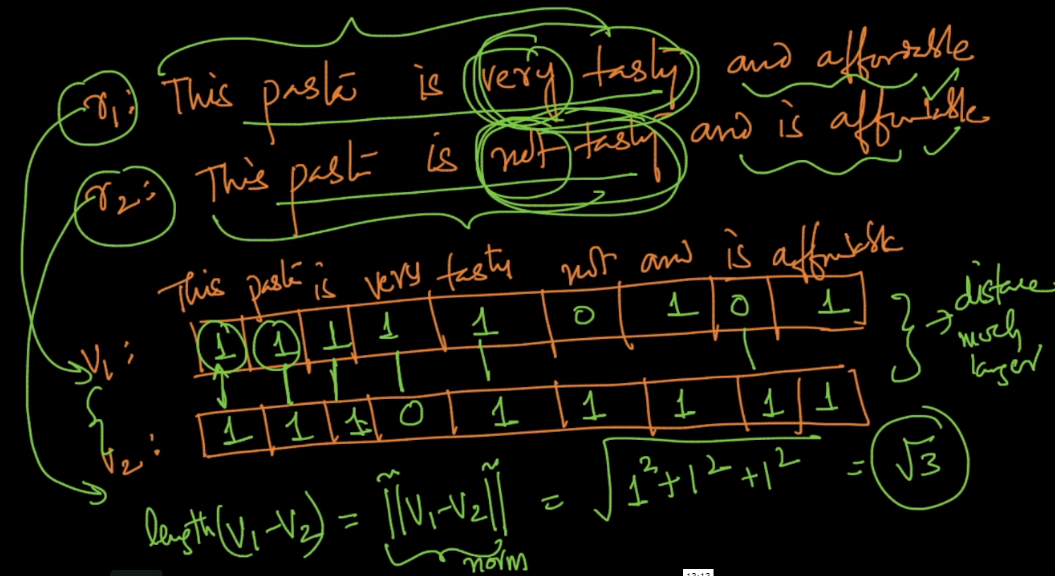 r1: This pasta is very tasty and affordable
r2: This pasta is not tasty and is affordable
This pasta is very tasty not and is affordable
V1: 1 1 1 1 1 0 1 0 1
V2: 1 1 1 0 1 1 1 1 1
→ distance
much
larger
length(V1-V2) = ||V1-V2|| = √1²+1²+1² = √3
norm